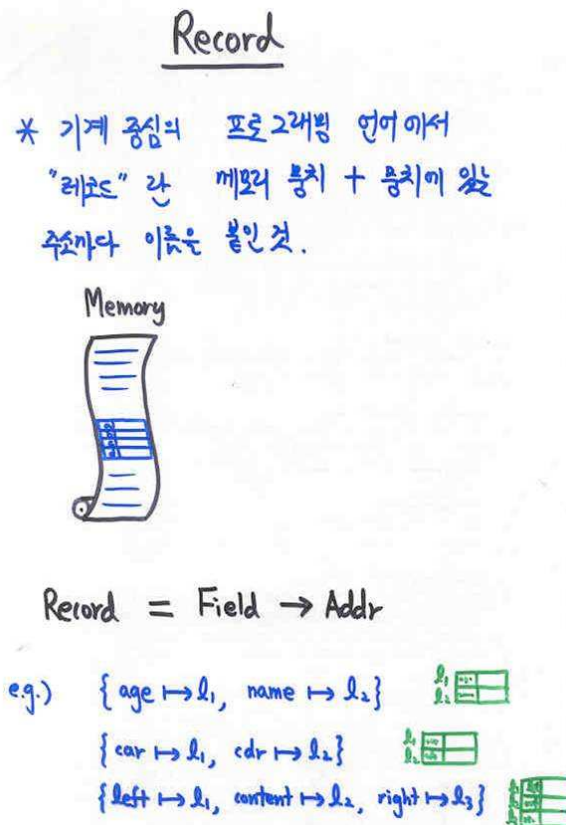 Record
* 기계 중심의 프로그래밍 언어에서
"레코드" 란 메모리 뭉치 + 뭉치에 있는
주소마다 이름을 붙인 것.
Memory
Record = Field → Addr
e.g.) { age ↦ l₁, name ↦ l₂}
l₁
l₂
{ car ↦ l₁, cdr ↦ l₂}
l₁
l₂
{left ↦ l₁, content ↦ l₂, right ↦ l₃}